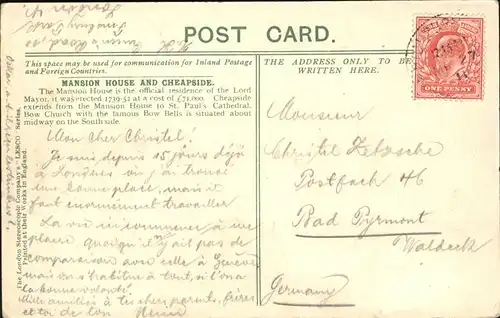 POST CARD.
This space may be used for communication for Inland Postage
and Foreign Countries.
THE ADDRESS ONLY TO BE
WRITTEN HERE.
MANSION HOUSE AND CHEAPSIDE.
The Mansion House is the official residence of the Lord
Mayor, it was erected 1739-52 at a cost of £71,000. Cheapside
extends from the Mansion House to St. Paul's Cathedral.
Bow Church with the famous Bow Bells is situated about
midway on the South side.
Mon cher Christel!
Je suis depuis 15 jours déjà
à Londres où j'ai trouvé
une bonne place, mais il
faut énormément travailler
La vie ici commence à me
plaire, quoiqu'il n'y ait pas de
comparaison avec celle à Genève
mais on s'habitue à tout, si l'on a
la bonne volonté!
Mille amitiés à tes chers parents, frères
et toi de ton
Monsieur
Christel Zetzsche
Postfach 46
Bad Pyrmont
Waldeck
Germany
ONE PENNY
The London Stereoscopic Company "LESCO" Series.
Printed at their Works in England.
London N.